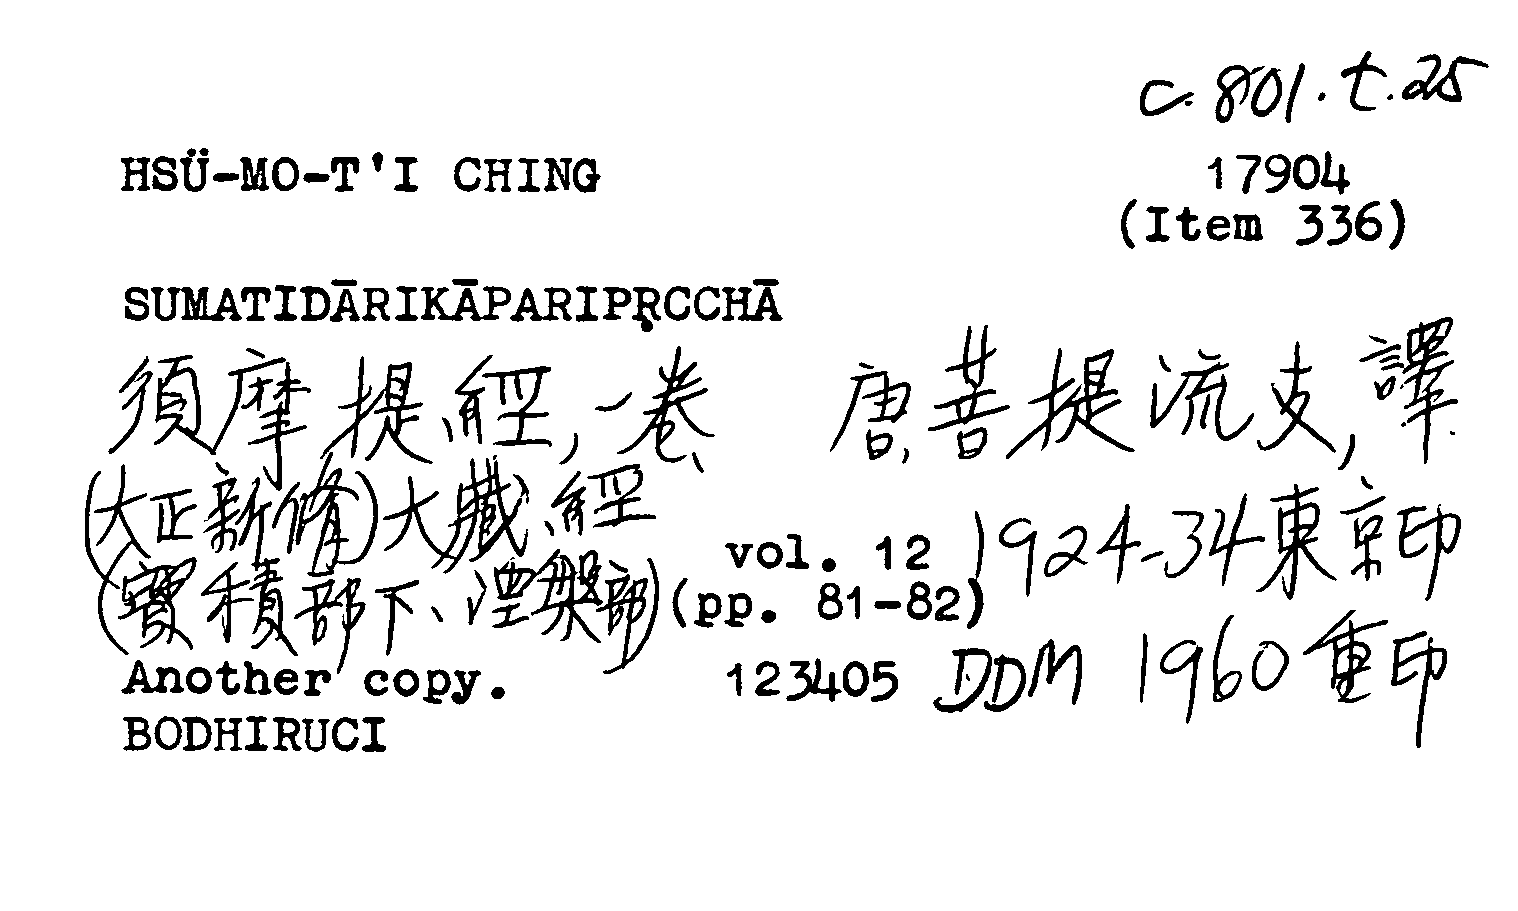 c.801.t.25
HSÜ-MO-T'I CHING 17904
(Item 336)
SUMATIDĀRIKĀPARIPṚCCHĀ
須摩提經,一卷 唐,菩提流支,譯.
(大正新脩)大藏經 vol. 12 1924-34東京印
(寶積部下、涅槃部)(pp. 81-82)
Another copy. 123405 DDM 1960重印
BODHIRUCI